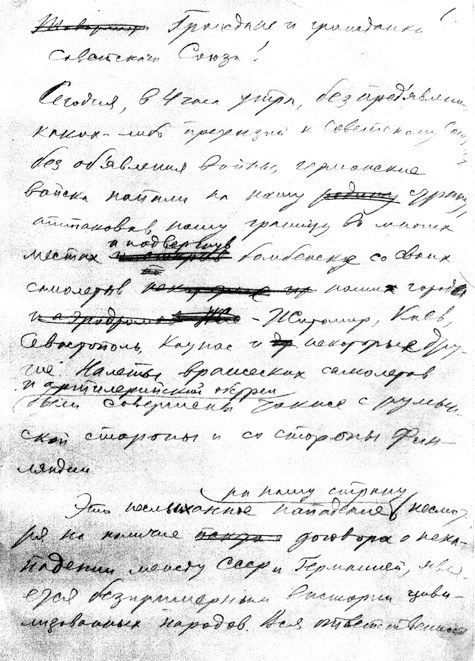 Граждане и гражданки!
Советского Союза!
Сегодня, в 4 часа утра, без пред'явления
каких-либо претензий к Советскому
без об'явления войны, германские
войска напали на нашу родину страну,
атаковав нашу границу во многих
местах и подвергнув бомбежке со своих
самолетов наши города
- Житомир, Киев,
Севастополь, Каунас и некоторые дру-
гие. Налеты вражеских самолетов
и артиллерийский обстрел
были совершены также с румын-
ской стороны и со стороны Фин-
ляндии
на нашу страну
Это неслыханное нападение несмот-
ря на наличие договора о нена-
падении между СССР и Германией, явля-
ется беспримерным в истории циви-
лизованных народов. Вся ответственность